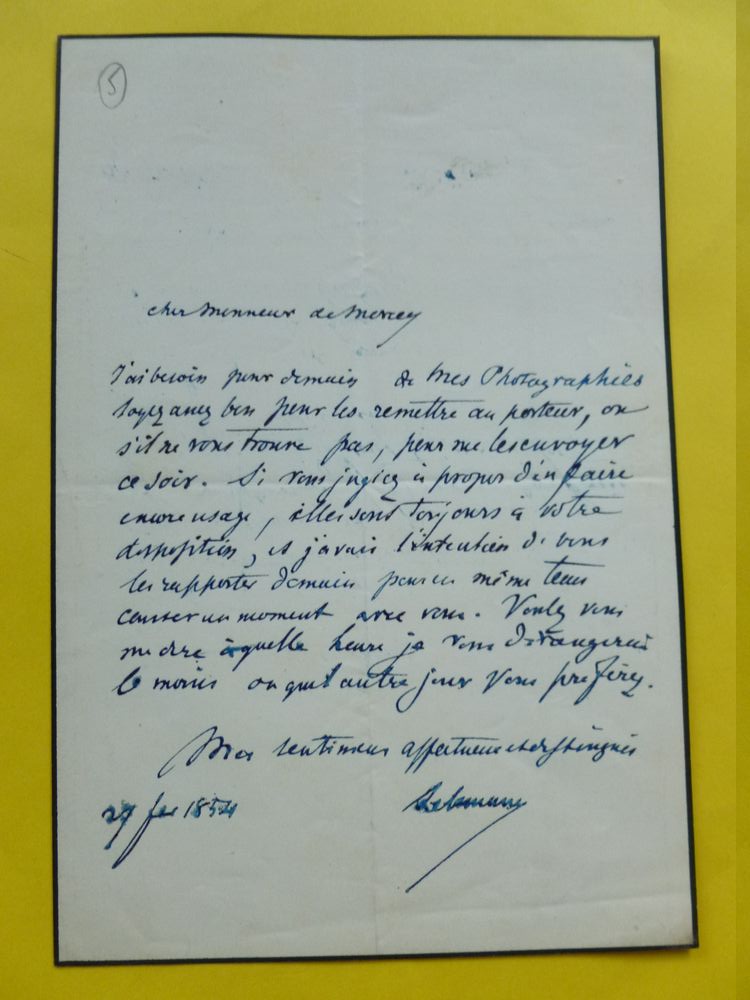 5
cher Monsieur de Mercey
J'ai besoin pour demain de mes Photographies
soyez assez bon pour les remettre au porteur, ou
s'il ne vous trouve pas, pour me les envoyer
ce soir. Si vous jugiez à propos d'en faire
encore usage, elles sont toujours à votre
disposition, et j'avais l'intention de vous
les rapporter demain pour en même tems
causer un moment avec vous. Voulez vous
me dire à quelle heure je vous dérangerai
le moins ou quel autre jour vous préférez.
Mes sentimens affectueux et distingués
27 fev 1854
Lehmann